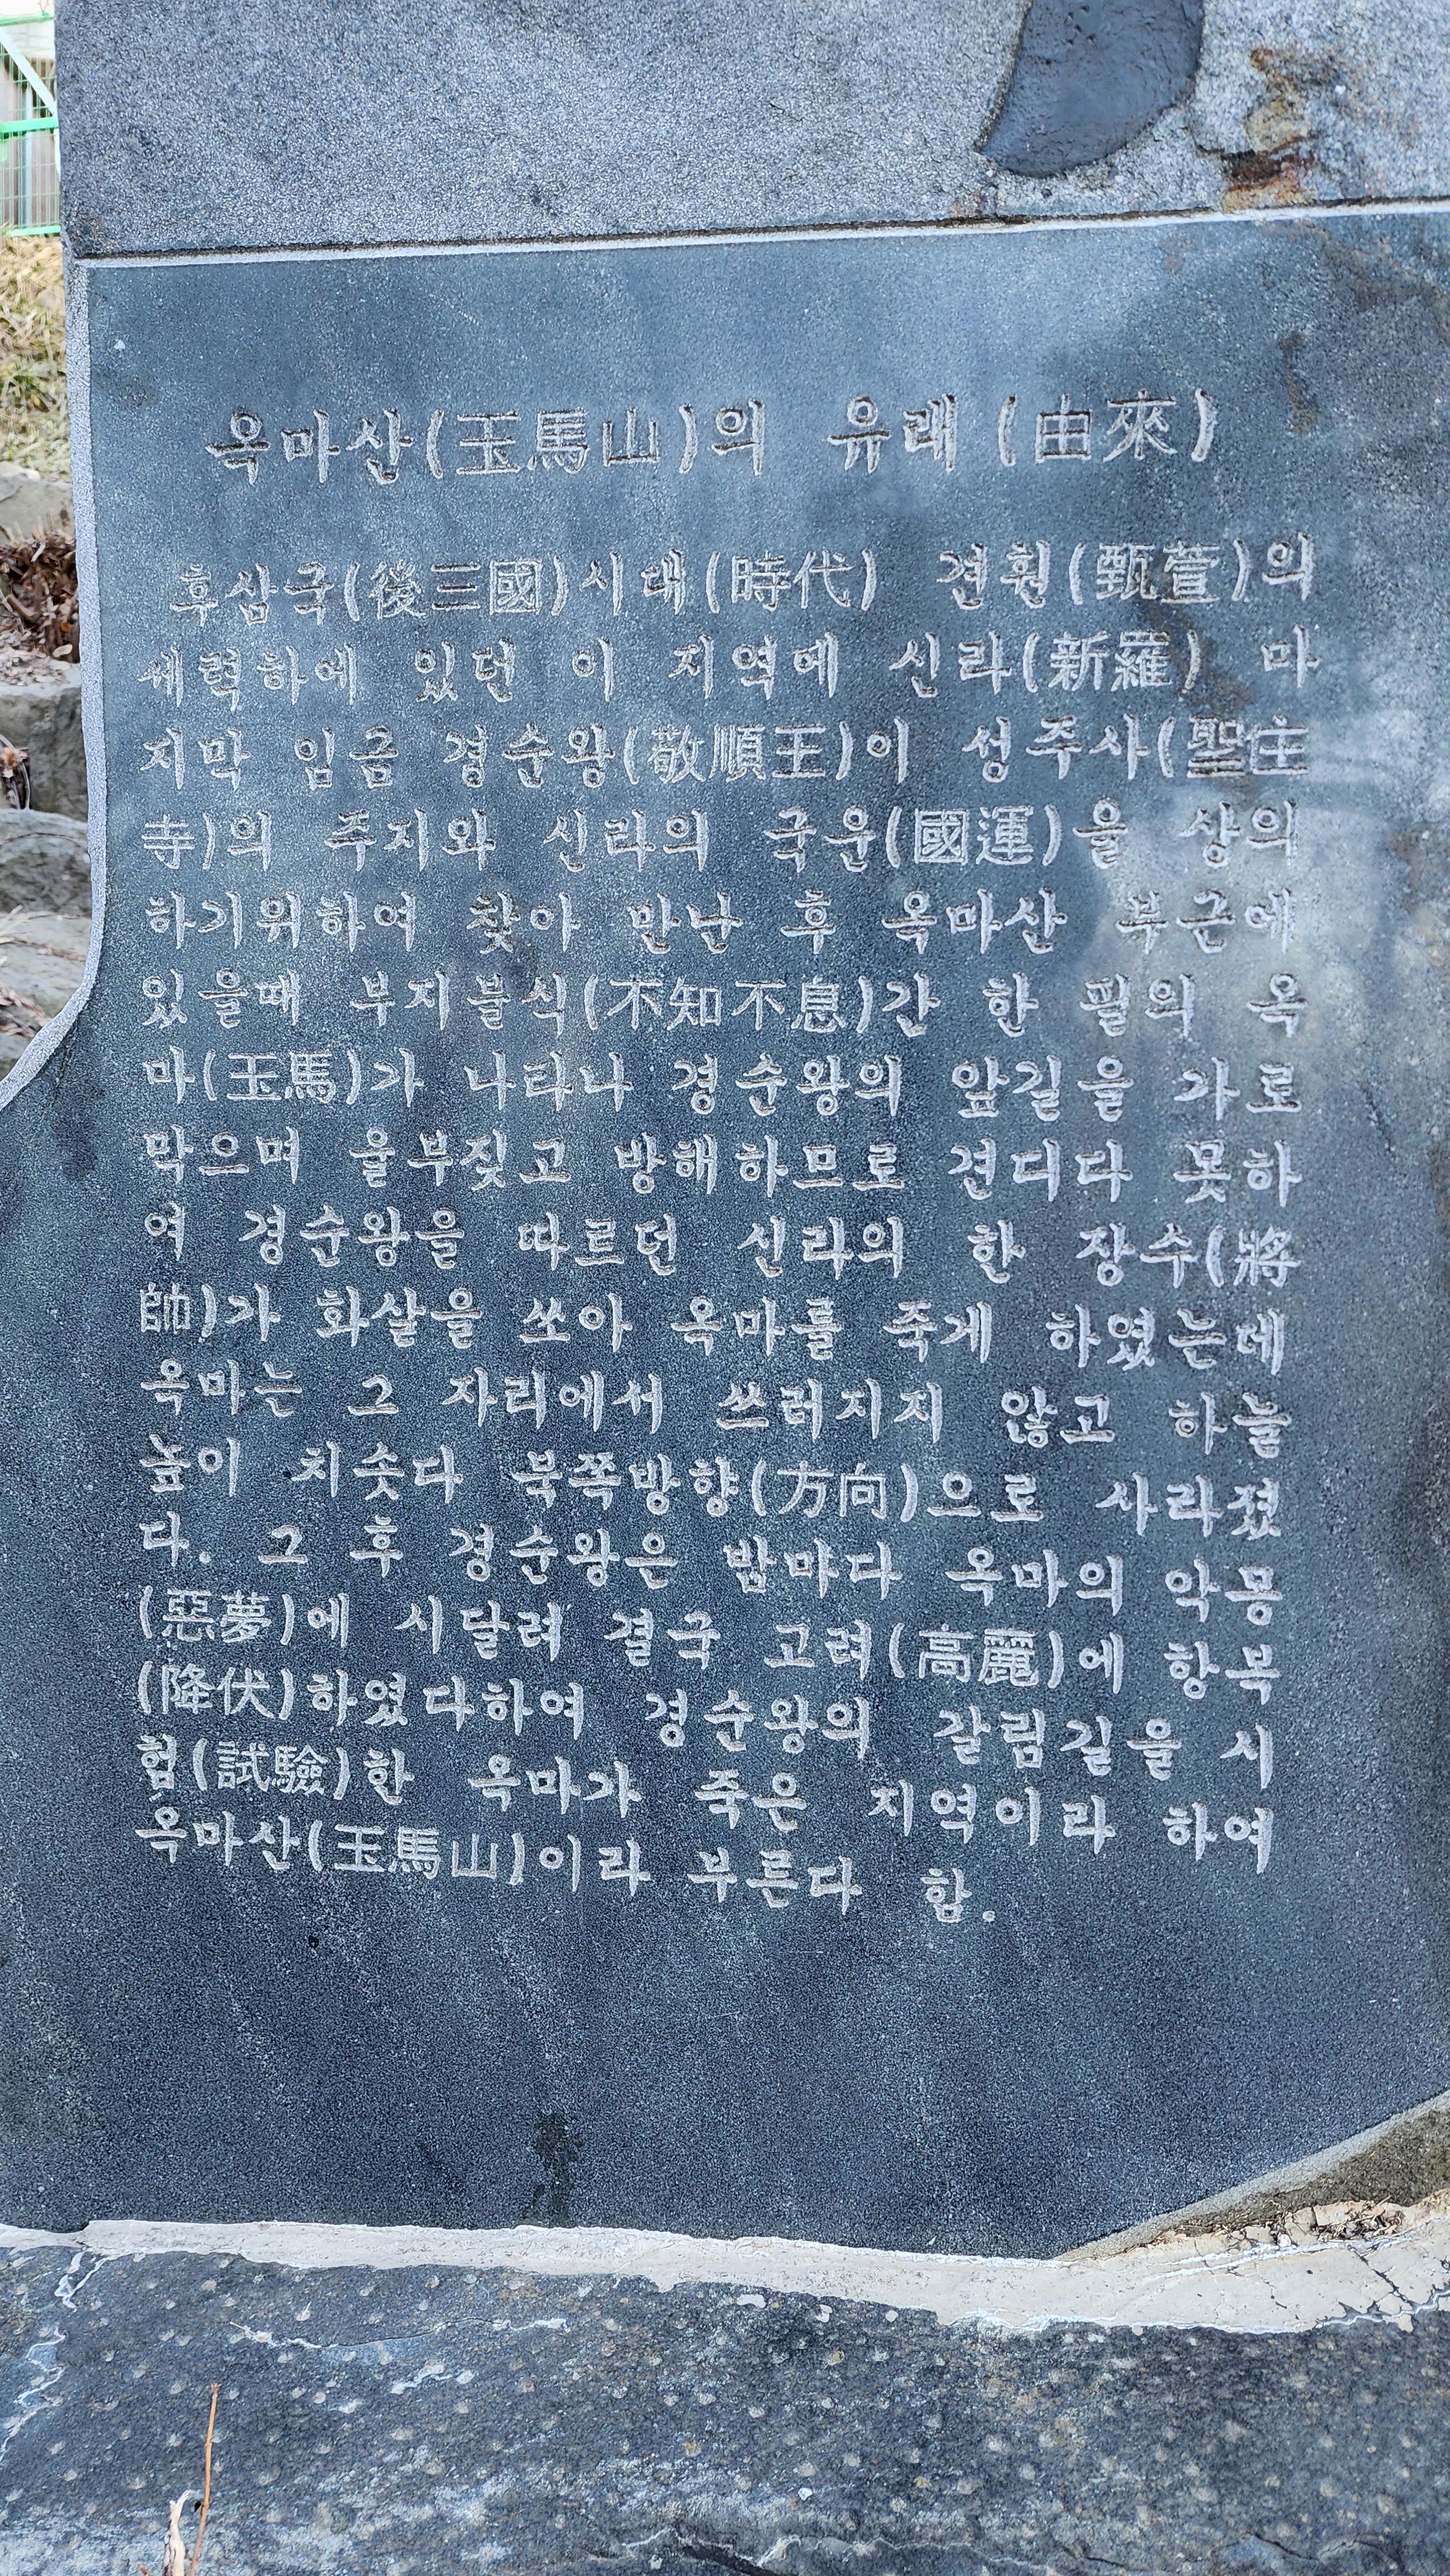 옥마산(玉馬山)의 유래(由來)
후삼국(後三國)시대(時代) 견훤(甄萱)의
세력하에 있던 이 지역에 신라(新羅) 마
지막 임금 경순왕(敬順王)이 성주사(聖住
寺)의 주지와 신라의 국운(國運)을 상의
하기위하여 찾아 만난 후 옥마산 부근에
있을때 부지불식(不知不息)간 한 필의 옥
마(玉馬)가 나타나 경순왕의 앞길을 가로
막으며 울부짖고 방해하므로 견디다 못하
여 경순왕을 따르던 신라의 한 장수(將
帥)가 화살을 쏘아 옥마를 죽게 하였는데
옥마는 그 자리에서 쓰러지지 않고 하늘
높이 치솟다 북쪽방향(方向)으로 사라졌
다. 그 후 경순왕은 밤마다 옥마의 악몽
(惡夢)에 시달려 결국 고려(高麗)에 항복
(降伏)하였다하여 경순왕의 갈림길을 시
험(試驗)한 옥마가 죽은 지역이라 하여
옥마산(玉馬山)이라 부른다 함.